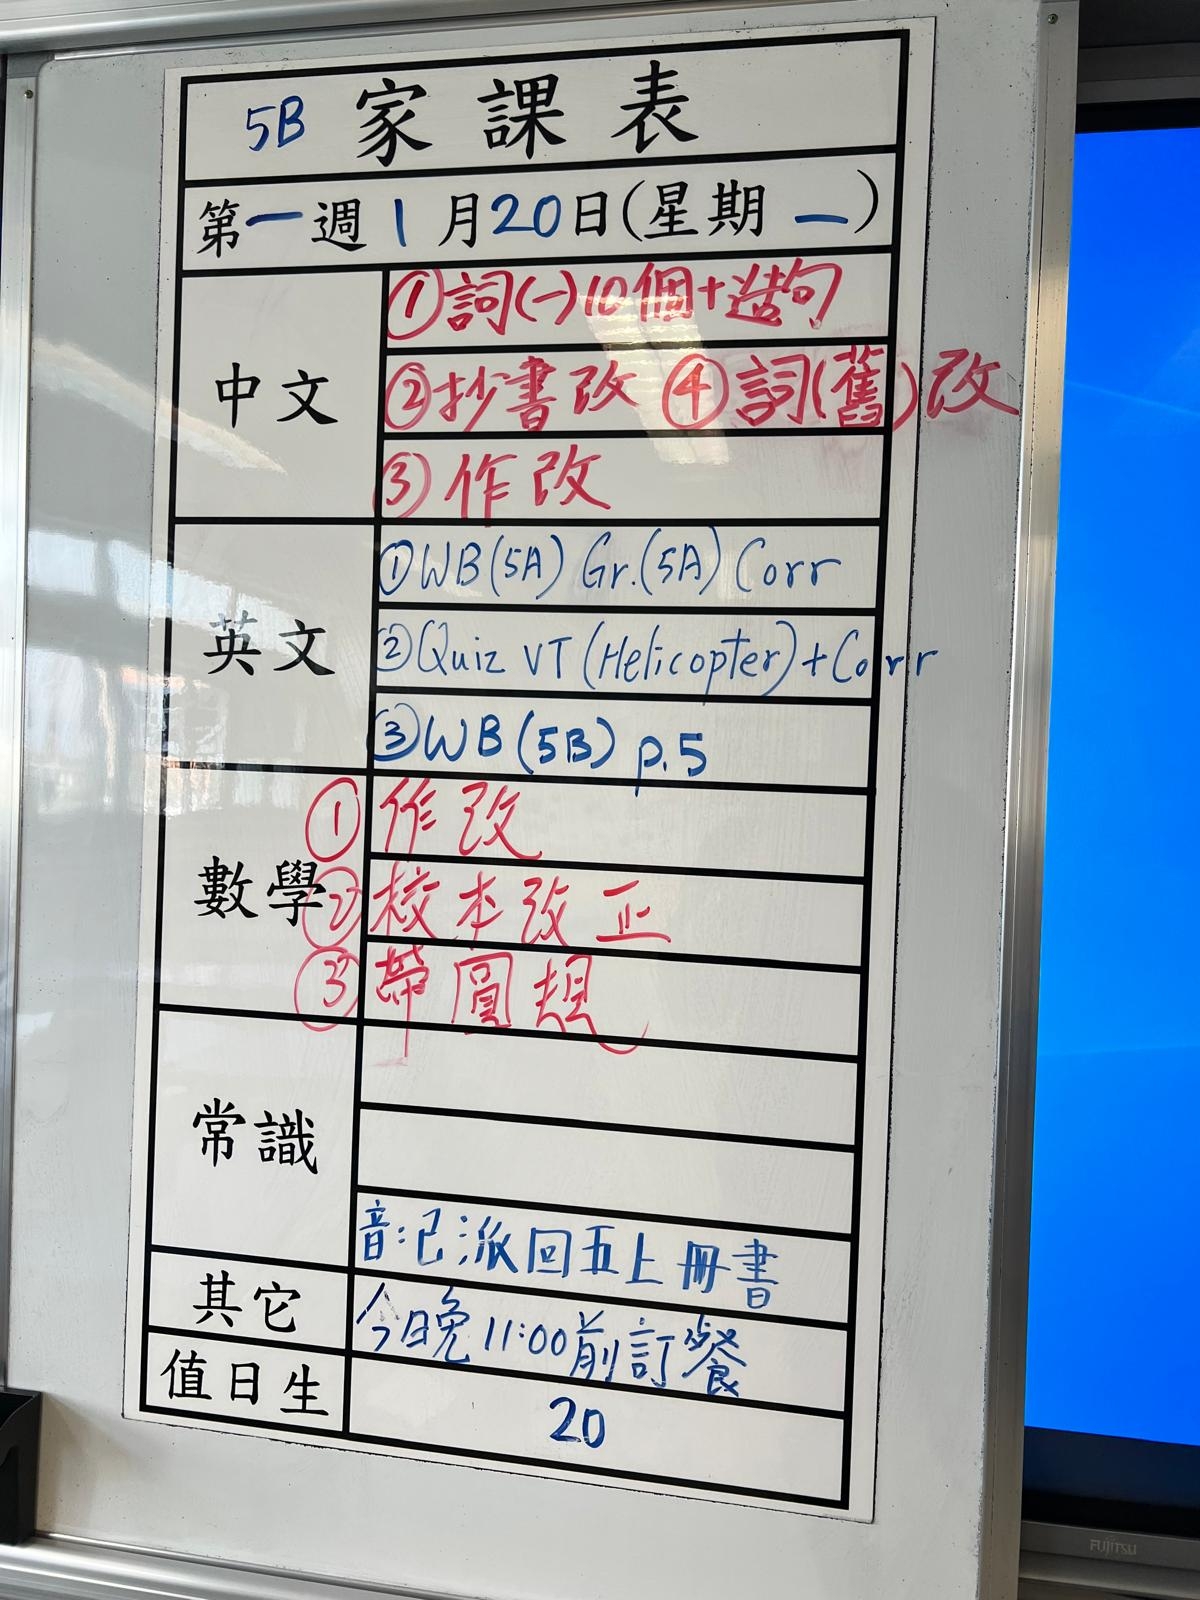 5B 家課表
第一週 1月20日(星期一)
中文
①詞(一)10個+造句
②抄書改 ④詞(舊)改
③作改
英文
①WB(5A) Gr.(5A) Corr
②Quiz VT (Helicopter)+Corr
③WB(5B) p.5
數學
①作改
②校本改正
③帶圓規
常識
音:已派回五上冊書
其它
今日晚11:00前訂餐
值日生
20
FUJITSU